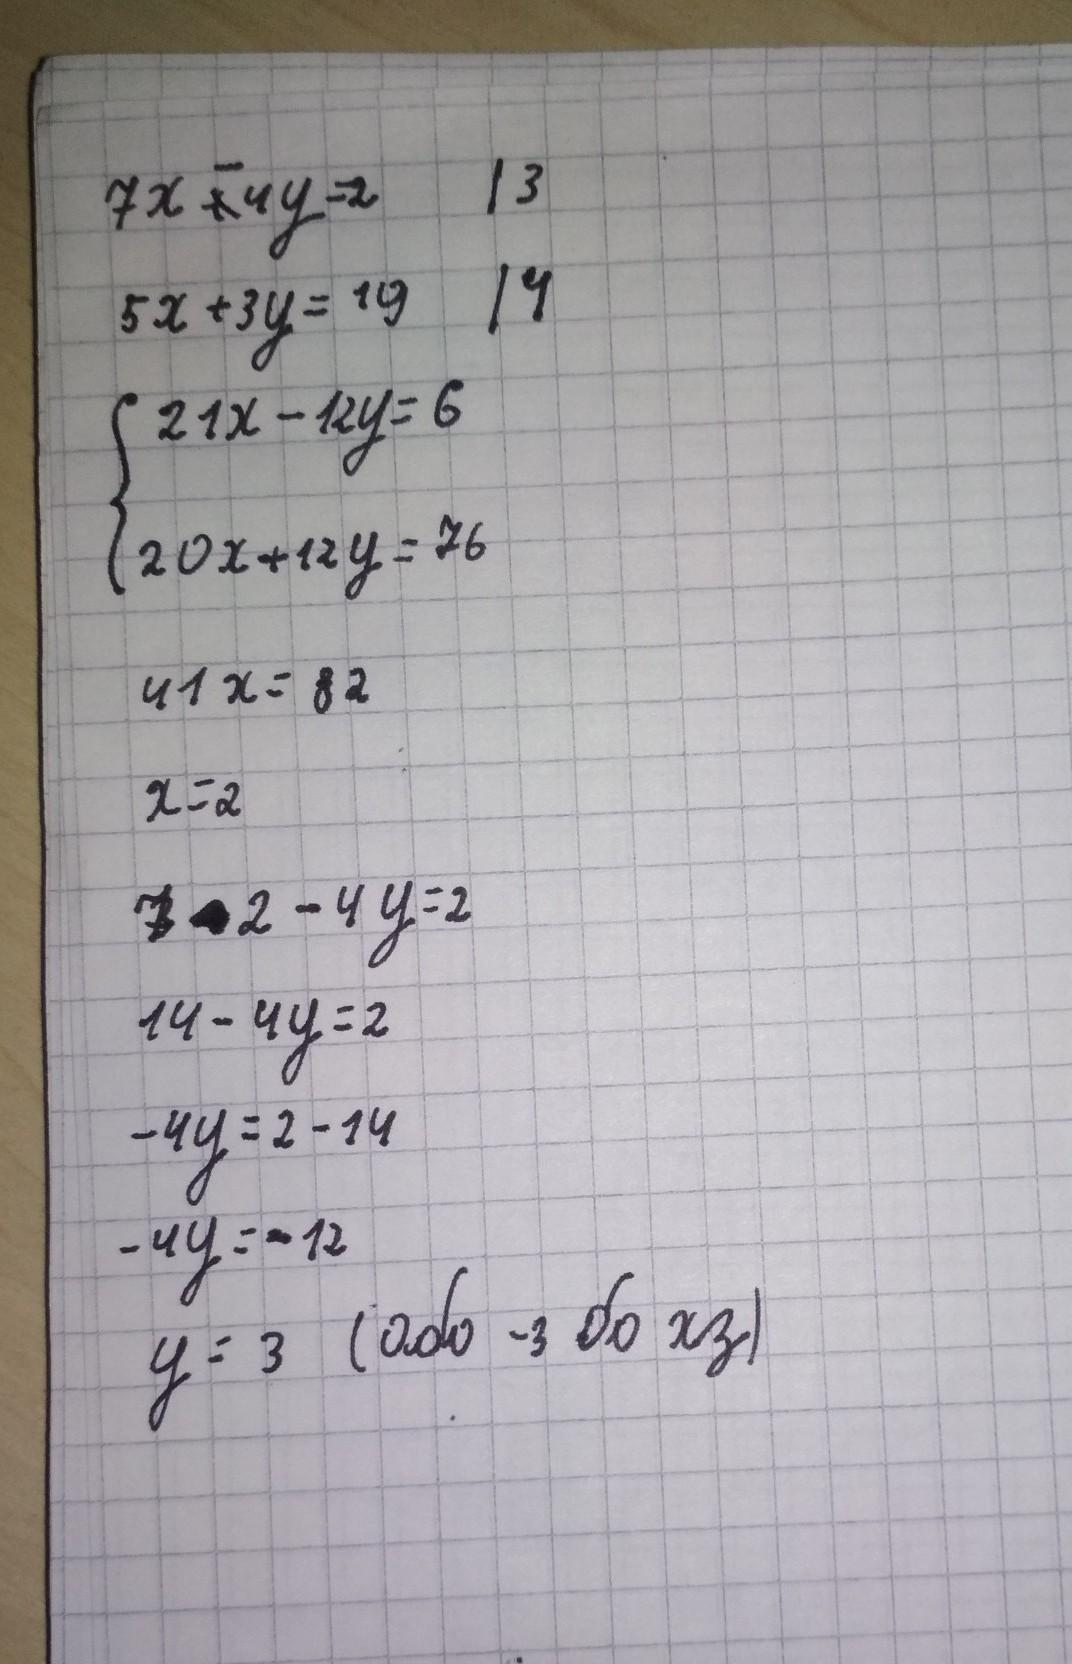 7x - 4y = 2 | 3
5x + 3y = 19 | 4
21x - 12y = 6
20x + 12y = 76
41x = 82
x = 2
7 · 2 - 4y = 2
14 - 4y = 2
-4y = 2 - 14
-4y = -12
y = 3 (або -3 бо хз)